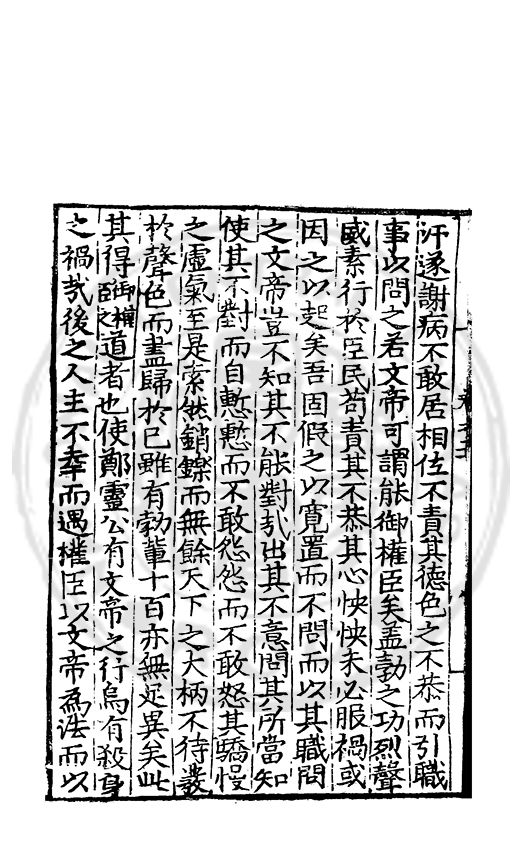 汗遂謝病不敢居相位不責其德色之不恭而引職
事以問之若文帝可謂能御權臣矣盖勃之功烈聲
威素行於臣民苟責其不恭其心怏怏未必服禍或
因之以起矣吾固假之以寬置而不問而以其職問
之文帝豈不知其不能對㢤出其不意問其所當知
使其不對而自慙慙而不敢怨怨而不敢怒其驕慢
之虛氣至是索然銷鑠而無餘天下之大柄不待發
於聲色而盡歸於已雖有勃輩十百亦無足異矣此
其得御權臣之道者也使鄭靈公有文帝之行烏有殺身
之禍㢤後之人主不幸而遇權臣以文帝為法而以